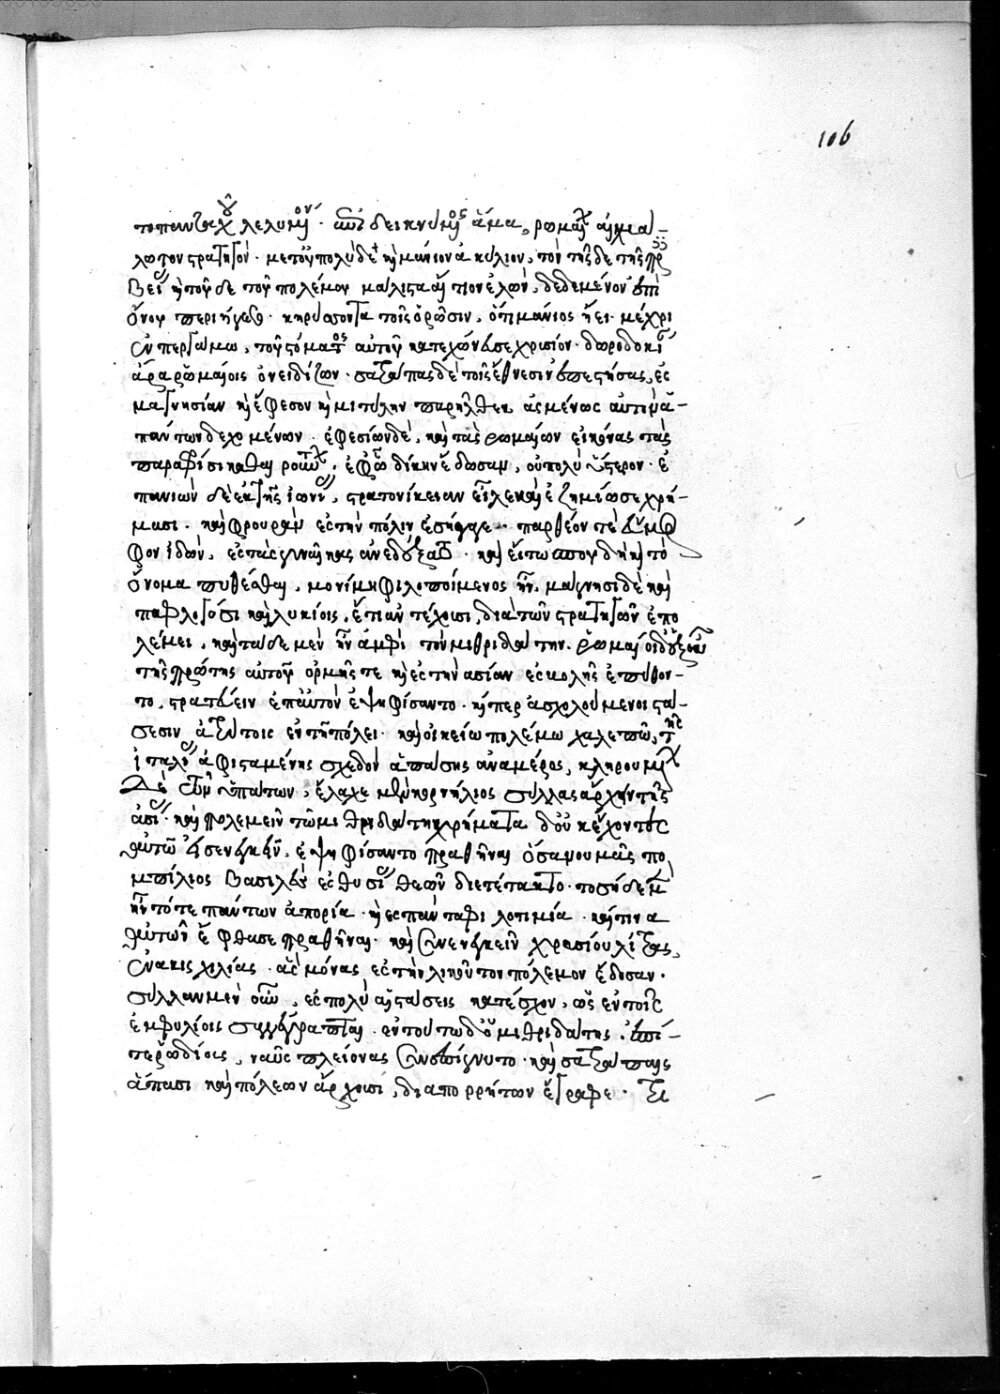 το πανταχοῦ λελυμένον. ἐπιδεικνύμενος ἅμα, ῥωμαίων αἰχμα-
λωτον στρατηγόν. μετ' οὐ πολὺ δὲ καὶ μάνιον ἀκύλιον, τὸν τῆσδε τῆς πρεσ
βείας καὶ τοῦδε τοῦ πολέμου μάλιστα αἴτιον ἑλὼν, δεδεμένον ἐπὶ
ὄνου περιήγετο. κηρύσσοντα τοῖς ὁρῶσιν, ὅτι μάνιος εἴη. μέχρι
ἐν περγάμω, τοῦ στόματος αὐτοῦ κατεχώνευσε χρυσίον. δωροδοκίαν
ἄρα ῥωμαίοις ὀνειδίζων. σατράπας δὲ τοῖς ἔθνεσιν ἐπιστήσας, ἐς
μαγνησίαν καὶ ἔφεσον καὶ μιτυλήνην παρῆλθεν, ἀσμένως αὐτὸν ἁ-
πάντων δεχομένων. ἐφεσίων δὲ, καὶ τὰς ῥωμαίων εἰκόνας τὰς
παρὰ σφίσι καθαιρούντων. ἐφ' ᾧ δίκην ἔδωσαν, οὐ πολὺ ὕστερον. ἐ
πανιὼν δὲ ἐκ τῆς ἰωνίας, στρατονίκειαν εἷλε καὶ ἐζημίωσε χρή-
μασι. καὶ φρουρὰν ἐς τὴν πόλιν ἐσήγαγε. παρθένον τε εὔμορ
φον ἰδὼν, ἐς τὰς γυναῖκας ἀνεδέξατο. καὶ εἴ τω σπουδὴ καὶ τὸ
ὄνομα πυθέσθαι, μονίμη φιλοποίμενος ἦν. μάγνησι δὲ καὶ
παφλαγόσι καὶ λυκίοις, ἔτι ἀντέχουσι, διὰ τῶν στρατηγῶν ἐπο
λέμει. καὶ τάδε μὲν ἦν ἀμφὶ τὸν μιθριδάτην. ῥωμαῖοι δ' ἐξ οὗ
τῆς πρώτης αὐτοῦ ὁρμῆς τε καὶ ἐς τὴν ἀσίαν ἐσβολῆς ἐπύθον-
το, στρατεύειν ἐπ' αὐτὸν ἐψηφίσαντο. καίπερ ἀσχολούμενοι στά-
σεσιν ἀτρύτοις ἐν τῆ πόλει. καὶ οἰκείω πολέμω χαλεπῶ, τῆς
ἰταλίας ἀφισταμένης σχεδὸν ἁπάσης ἀνὰ μέρος, κληρουμένων
δὲ τῶν ὑπάτων, ἔλαχε μὲν κορνήλιος σύλλας ἄρχειν τῆς
ἀσίας. καὶ πολεμεῖν τῶ μιθριδάτη χρήματα δ' οὐκ ἔχοντες
αὐτῶ ἐσενεγκεῖν, ἐψηφίσαντο πραθῆναι ὅσα νουμᾶς πο
μπίλιος βασιλεὺς ἐς θυσίας θεῶν διετέτακτο. τοσήδε μὲν
ἦν τότε πάντων ἀπορία. καὶ ἐς πάντα φιλοτιμία. καί τινα
αὐτῶν ἔφθασε πραθῆναι. καὶ συνενεγκεῖν χρυσίου λίτρας,
ἐνακισχιλίας. ἃς μόνας ἐς τηλικοῦτον πόλεμον ἔδοσαν.
σύλλαν μὲν οὖν, ἐς πολὺ αἱ στάσεις κατέσχον, ὡς ἐν τοῖς
ἐμφυλίοις συγγέγραπται. ἐν τούτω δ' ὁ μιθριδάτης, ἐπί-
τε ῥοδίοις, ναῦς πλείονας συνεπήγνυτο. καὶ σατράπαις
ἅπασι καὶ πόλεων ἄρχουσι, δι' ἀπορρήτων ἔγραφε. τρι
106